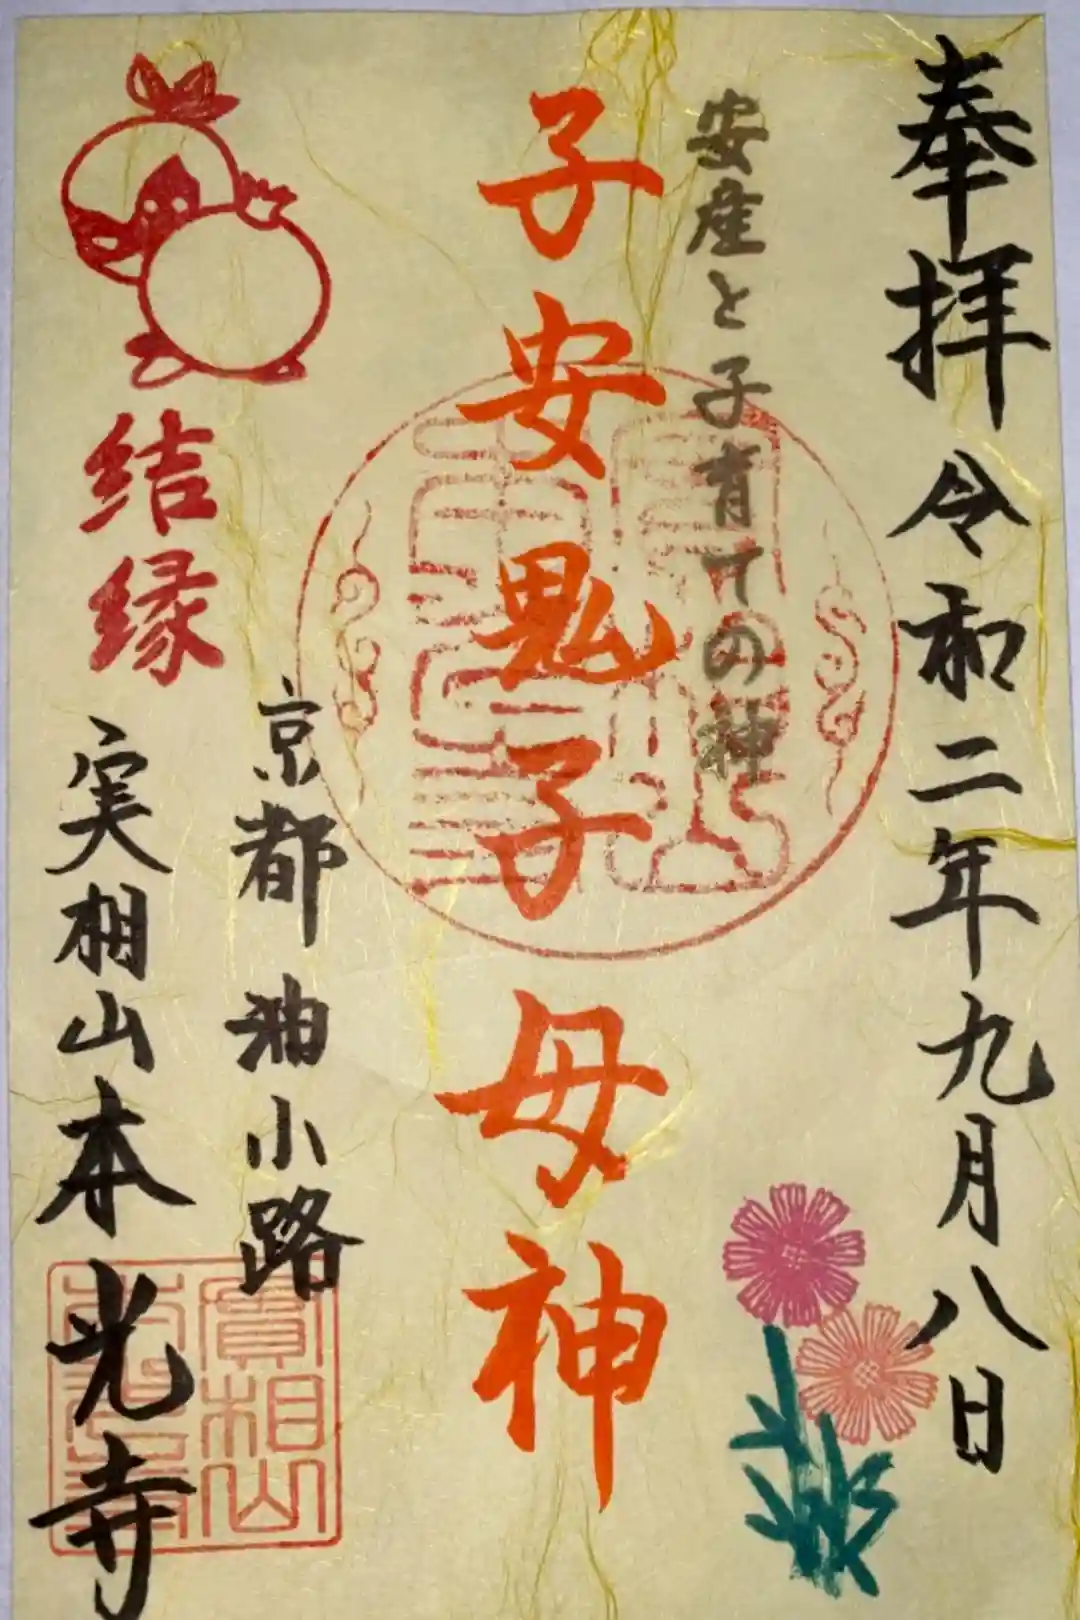 奉拝 令和二年九月八日
安産と子育ての神
子安鬼子母神
结縁
京都 油小路
実相山 本光寺
實相山